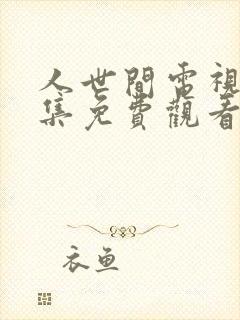 人世間電視
集免費觀看
衣鱼